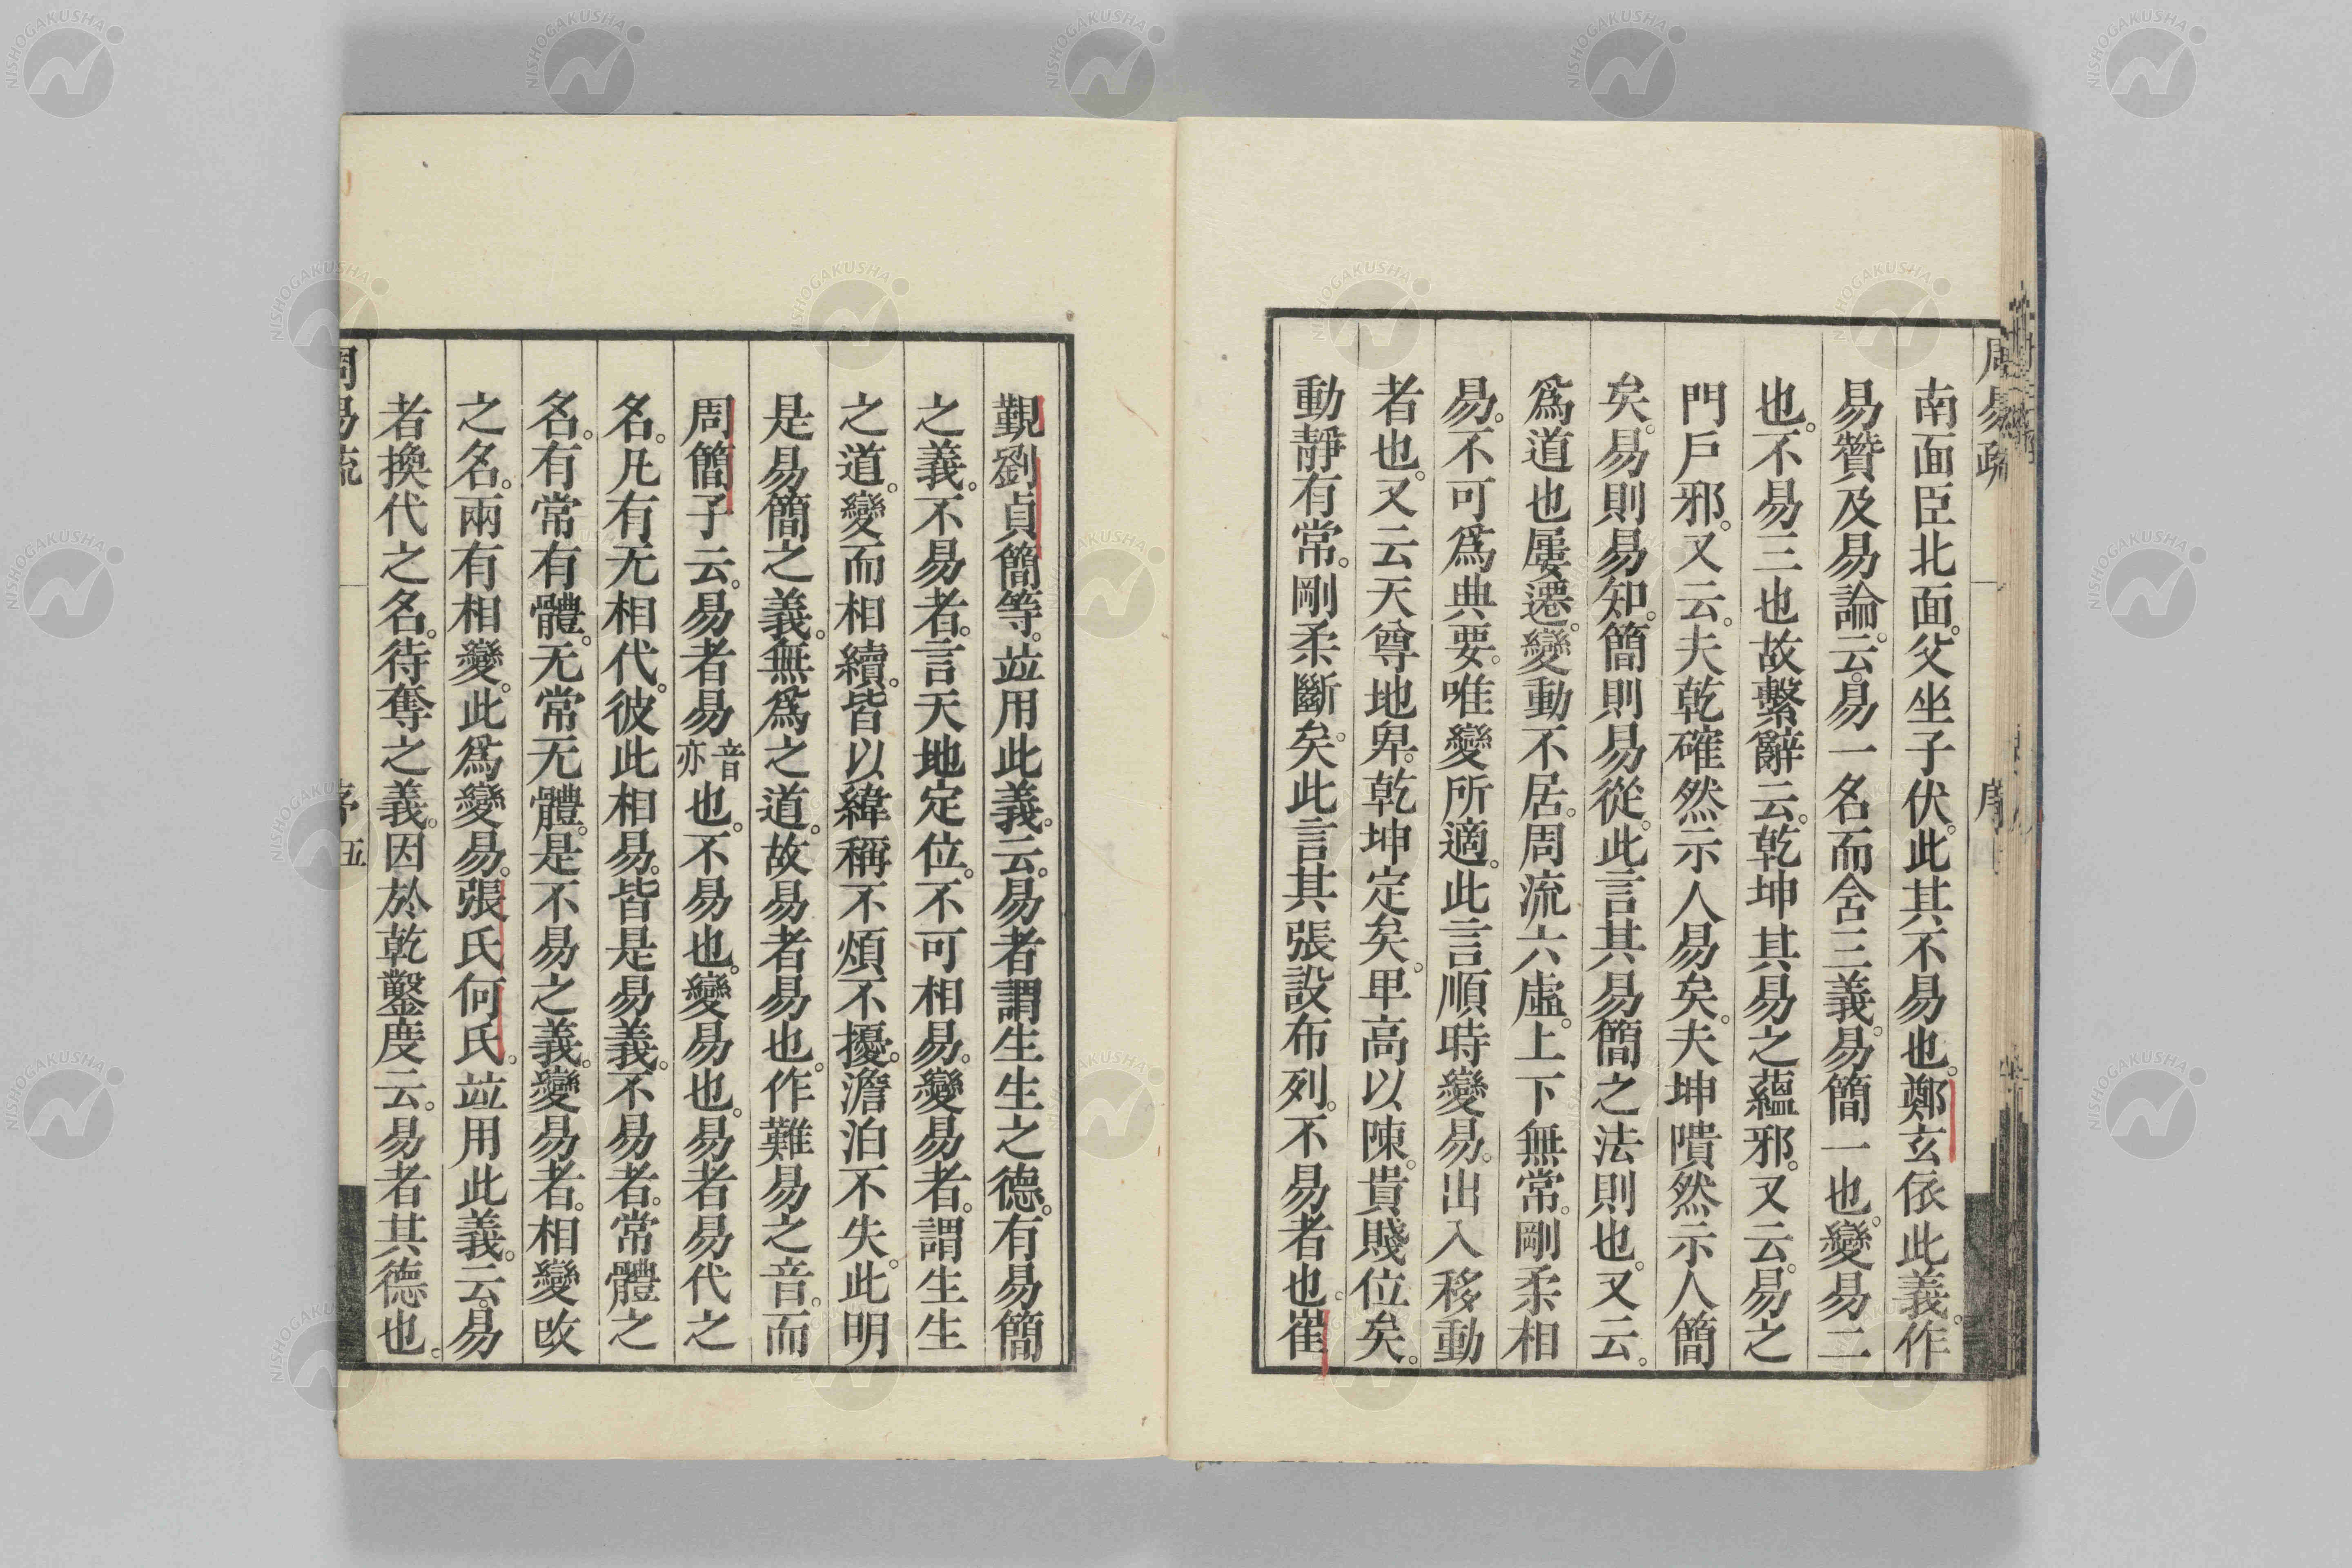 周易疏 序
南面臣北面。父坐子伏。此其不易也。鄭玄依此義。作
易贊及易論。云。易一名而含三義。易簡一也。變易二
也。不易三也故繫辭云。乾坤其易之蘊邪。又云。易之
門戶邪。又云。夫乾確然示人易矣。夫坤隤然示人簡
矣。易則易知。簡則易從。此言其易簡之法則也。又云。
爲道也屢遷。變動不居。周流六虛。上下無常。剛柔相
易。不可爲典要。唯變所適。此言順時變易。出入移動
者也。又云天尊地卑。乾坤定矣。卑高以陳。貴賤位矣。
動靜有常。剛柔斷矣。此言其張設布列。不易者也。崔
覲劉貞簡等。竝用此義。云。易者謂生生之德。有易簡
之義。不易者。言天地定位。不可相易。變易者。謂生生
之道。變而相續。皆以緯稱不煩不擾。澹泊不失。此明
是易簡之義。無爲之道。故易者易也。作難易之音。而
周簡子云。易者易音亦也。不易也。變易也。易者易代之
名。凡有无相代。彼此相易。皆是易義。不易者。常體之
名。有常有體。无常无體。是不易之義。變易者。相變改
之名。兩有相變。此爲變易。張氏何氏。竝用此義。云。易
者換代之名。待奪之義。因於乾鑿度云。易者其德也。
周易疏 序 五
NISHOGAKUSHA